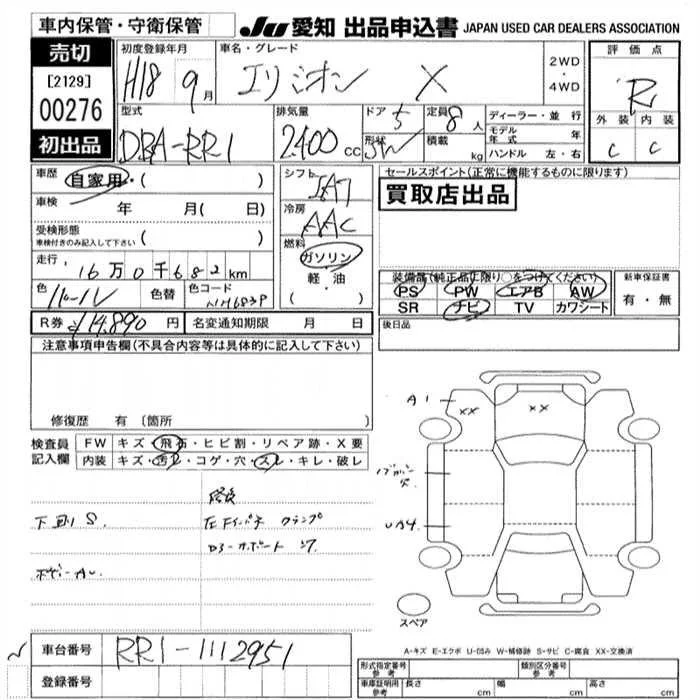 車内保管・守衛保管
JU 愛知 出品申込書 JAPAN USED CAR DEALERS ASSOCIATION
売切
[2129]
00276
初出品
初度登録年月
H18 9月
車名・グレード
エリシオン X
2WD
・
4WD
評価点
R
外装 内装
C C
型式
DBA-RR1
排気量
2400 cc
ドア 5
定員 8人
形状 SW
積載 kg
ディーラー・並行
モデル年式 年
ハンドル 左・右
車歴 自家用・( )
車検 年 月( 日)
受検形態
車検付きのみ記入して下さい ( )
走行 16万0千682km
色
色替
色コード NH683P
シフト
冷房 AAC
燃料
ガソリン
・
軽・油
( )
セールスポイント(正常に機能するものに限ります)
買取店出品
装備品(純正品に限り○をつけてください)
PS PW エアB AW
SR ナビ TV カワシート
新車保証書
有・無
R券 ¥14,890円 名変通知期限 月 日
後日品
注意事項申告欄(不具合内容等は具体的に記入して下さい)
修復歴 有〔箇所
検査員記入欄
FW キズ・飛石・ヒビ割・リペア跡・X要
内装 キズ・汚レ・コゲ・穴・スレ・キレ・破レ
下廻りS.
A1
XX
XX
UA4
スペア
A-キズ E-エクボ U-凹み W-補修跡 S-サビ C-腐食 XX-交換済
車台番号 RR1-1112951
登録番号
型式指定番号 参考
類別区分番号 参考
車庫証明用 参考
長さ cm 幅 cm 高さ cm